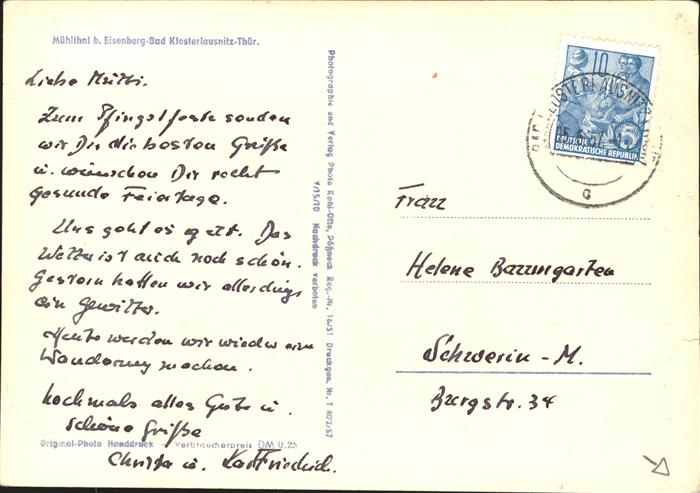 Mühlthal b. Eisenberg-Bad Klosterlausnitz-Thür.
Liebe Mutti.
Zum Pfingstfeste senden
wir Dir die besten Grüße
u. wünschen Dir recht
gesunde Feiertage.
Uns geht es gut. Das
Wetter ist auch noch schön.
Gestern hatten wir allerdings
ein Gewitter.
Heute werden wir wieder eine
Wanderung machen.
Nochmals alles Gute u.
schöne Grüße
Christa u. Karl Friedrich.
Original-Photo Handdruck - Verbraucherpreis DM 0.25
Photographie und Verlag Photo Kohl-Otte, Pößneck Reg.-Nr. 16/51 Druckgen. Nr. T 802/57
V/15/10 Nachdruck verboten
10 5
DEUTSCHE
DEMOKRATISCHE REPUBLIK
BAD KLOSTERLAUSNITZ
c
Frau
Helene Baumgarten
Schwerin-M.
Burgstr. 34